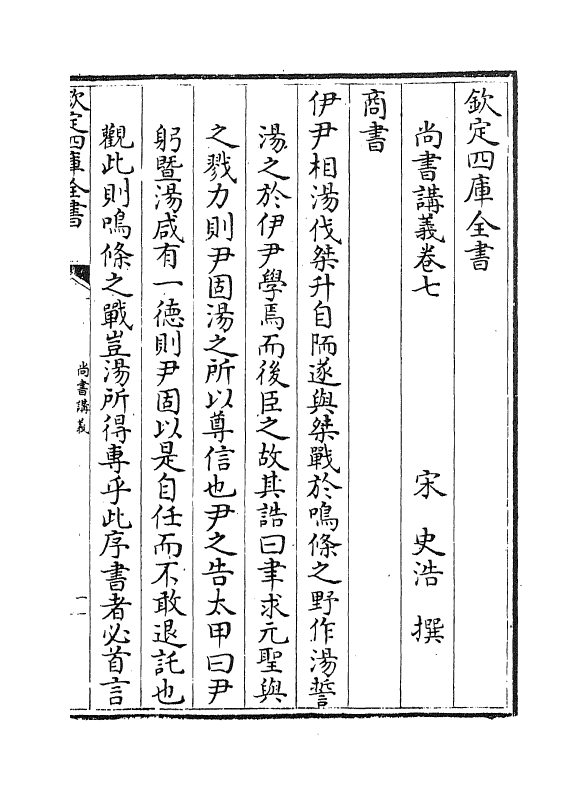 欽定四庫全書
尚書講義卷七
宋 史浩 撰
商書
伊尹相湯伐桀升自陑遂與桀戰於鳴條之野作湯誓
湯之於伊尹學焉而後臣之故其誥曰聿求元聖與
之戮力則尹固湯之所以尊信也尹之告太甲曰尹
躬暨湯咸有一德則尹固以是自任而不敢退託也
觀此則鳴條之戰豈湯所得專乎此序書者必首言
欽定四庫全書
尚書講義
一